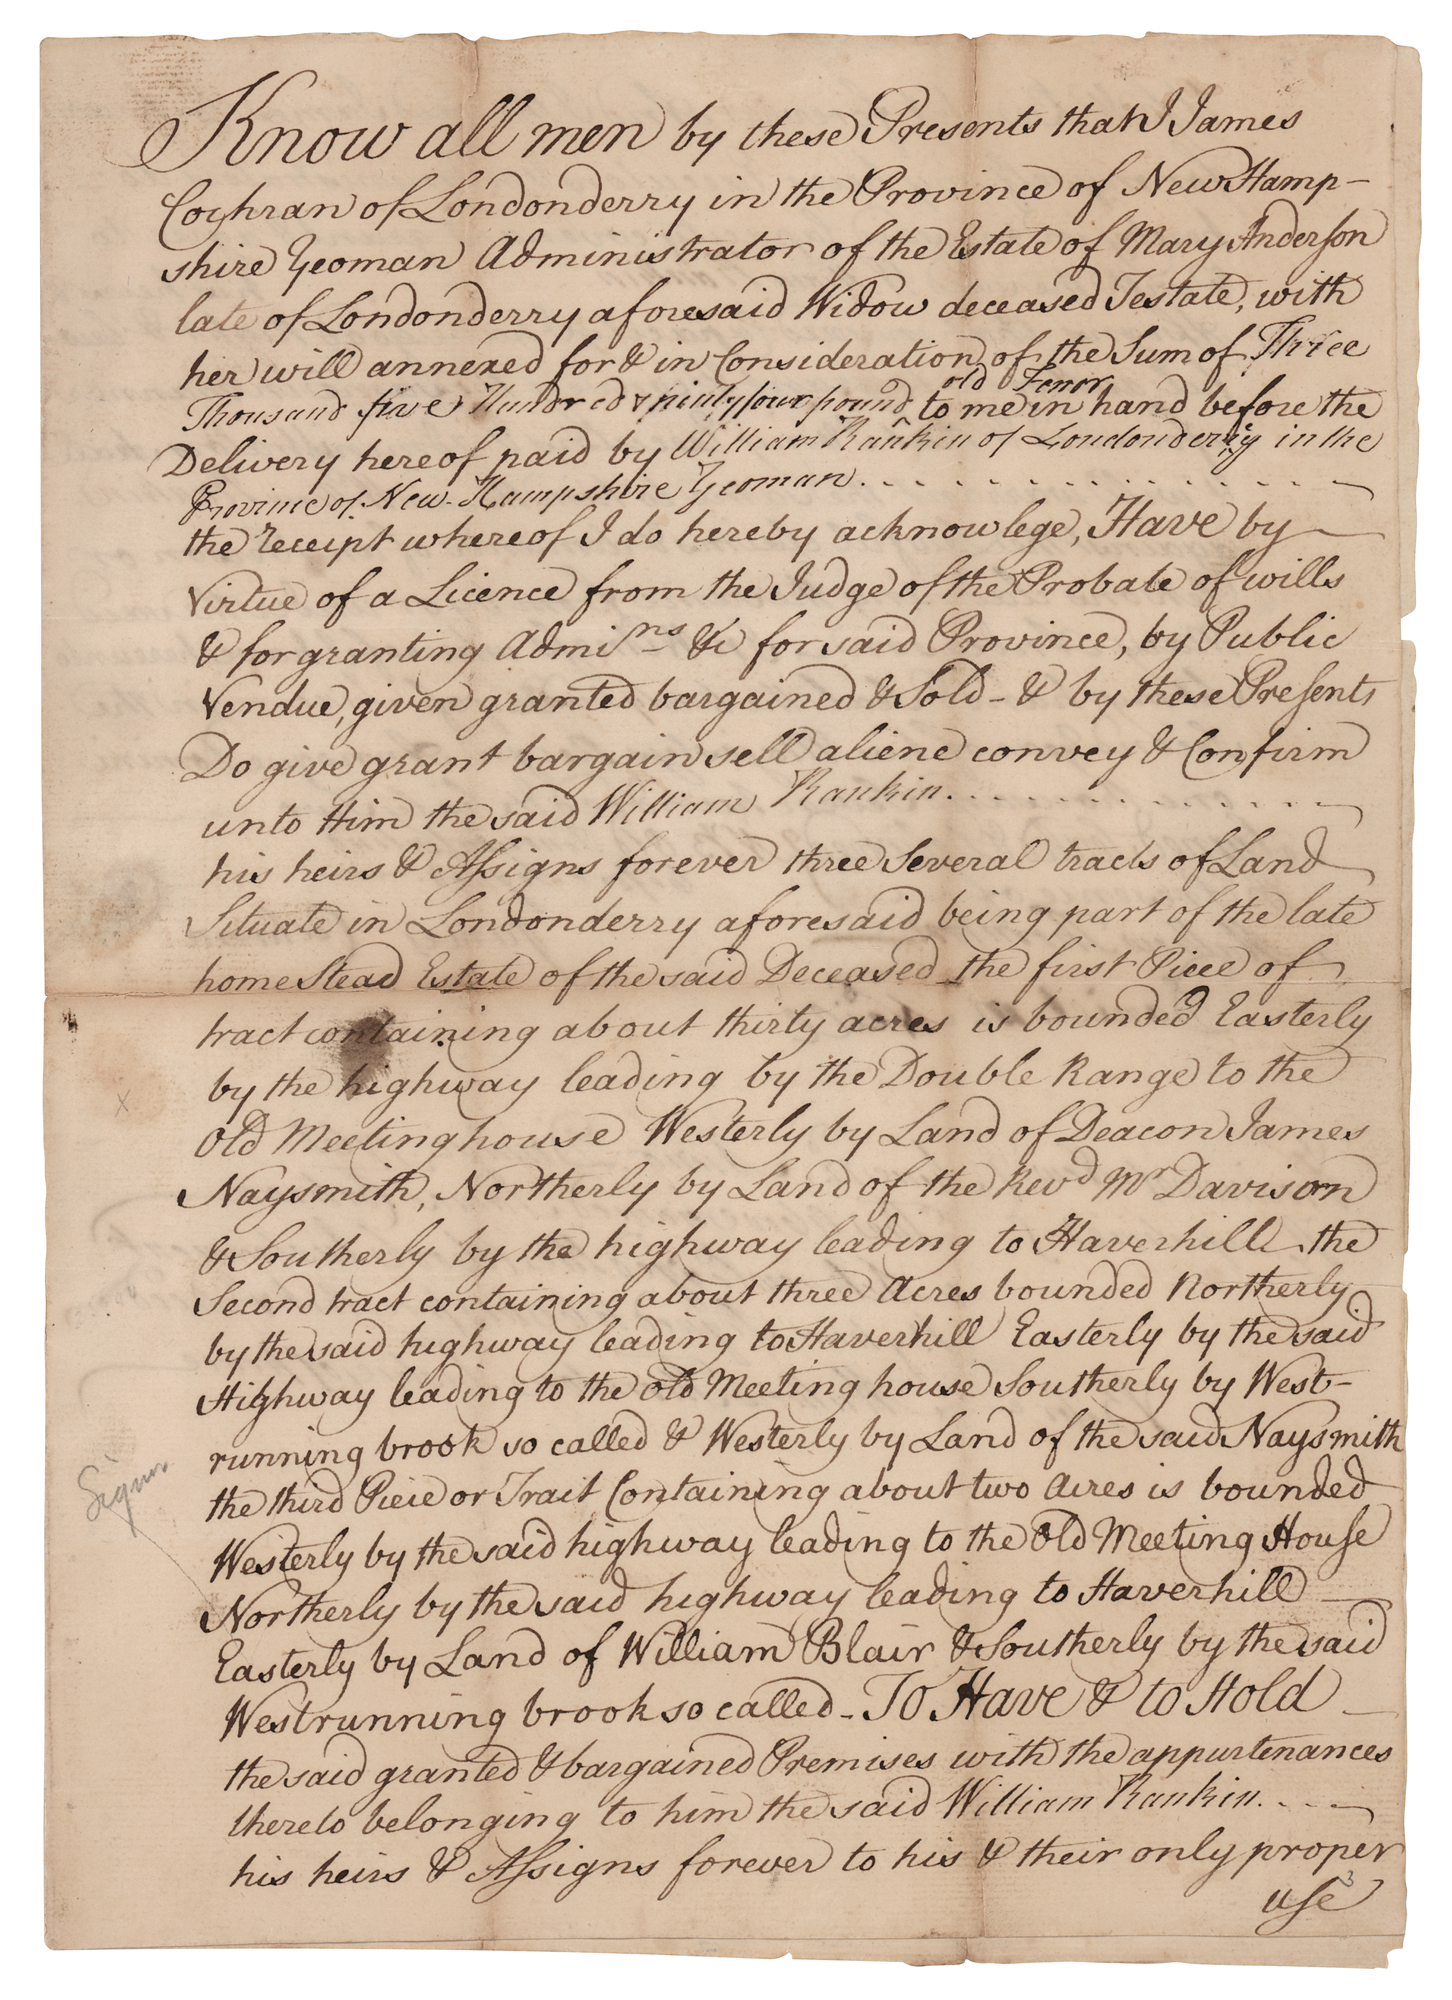 Know all men by these Presents that I James
Cochran of Londonderry in the Province of New Hamp-
shire Yeoman Administrator of the Estate of Mary Anderson
late of Londonderry aforesaid Widow deceased Testate, with
her will annexed for & in Consideration of the Sum of Three
old Tenor
Thousand five Hundred & ninty four pound to me in hand before the
Delivery hereof paid by William Rankin of Londonderry in the
Province of New-Hampshire Yeoman
the receipt whereof I do hereby acknowlege, Have by
Virtue of a Licence from the Judge of the Probate of wills
& for granting Admi.ns &c for said Province, by Public
Vendue, given granted bargained & Sold - & by these Presents
Do give grant bargain sell aliene convey & Confirm
unto Him the said William Rankin
his heirs & Assigns forever three Several tracts of Land
Situate in Londonderry aforesaid being part of the late
home Stead Estate of the said Deceased the first Piece of
tract containing about thirty acres is bounded Easterly
by the highway leading by the Double Range to the
Old Meetinghouse Westerly by Land of Deacon James
Naysmith, Northerly by Land of the Revd Mr Davison
& Southerly by the highway leading to Haverhill the
Second tract containing about three Acres bounded Northerly
by the said highway leading to Haverhill Easterly by the said
Highway leading to the old Meeting house Southerly by West-
running brook so called & Westerly by Land of the said Naysmith
the third Piece or Tract Containing about two Acres is bounded
Westerly by the said highway leading to the Old Meeting House
Northerly by the said highway leading to Haverhill
Easterly by Land of William Blair & Southerly by the said
Westrunning brook so called - To Have & to Hold
the said granted & bargained Premises with the appurtenances
thereto belonging to him the said William Rankin
his heirs & Assigns forever to his & their only proper
use